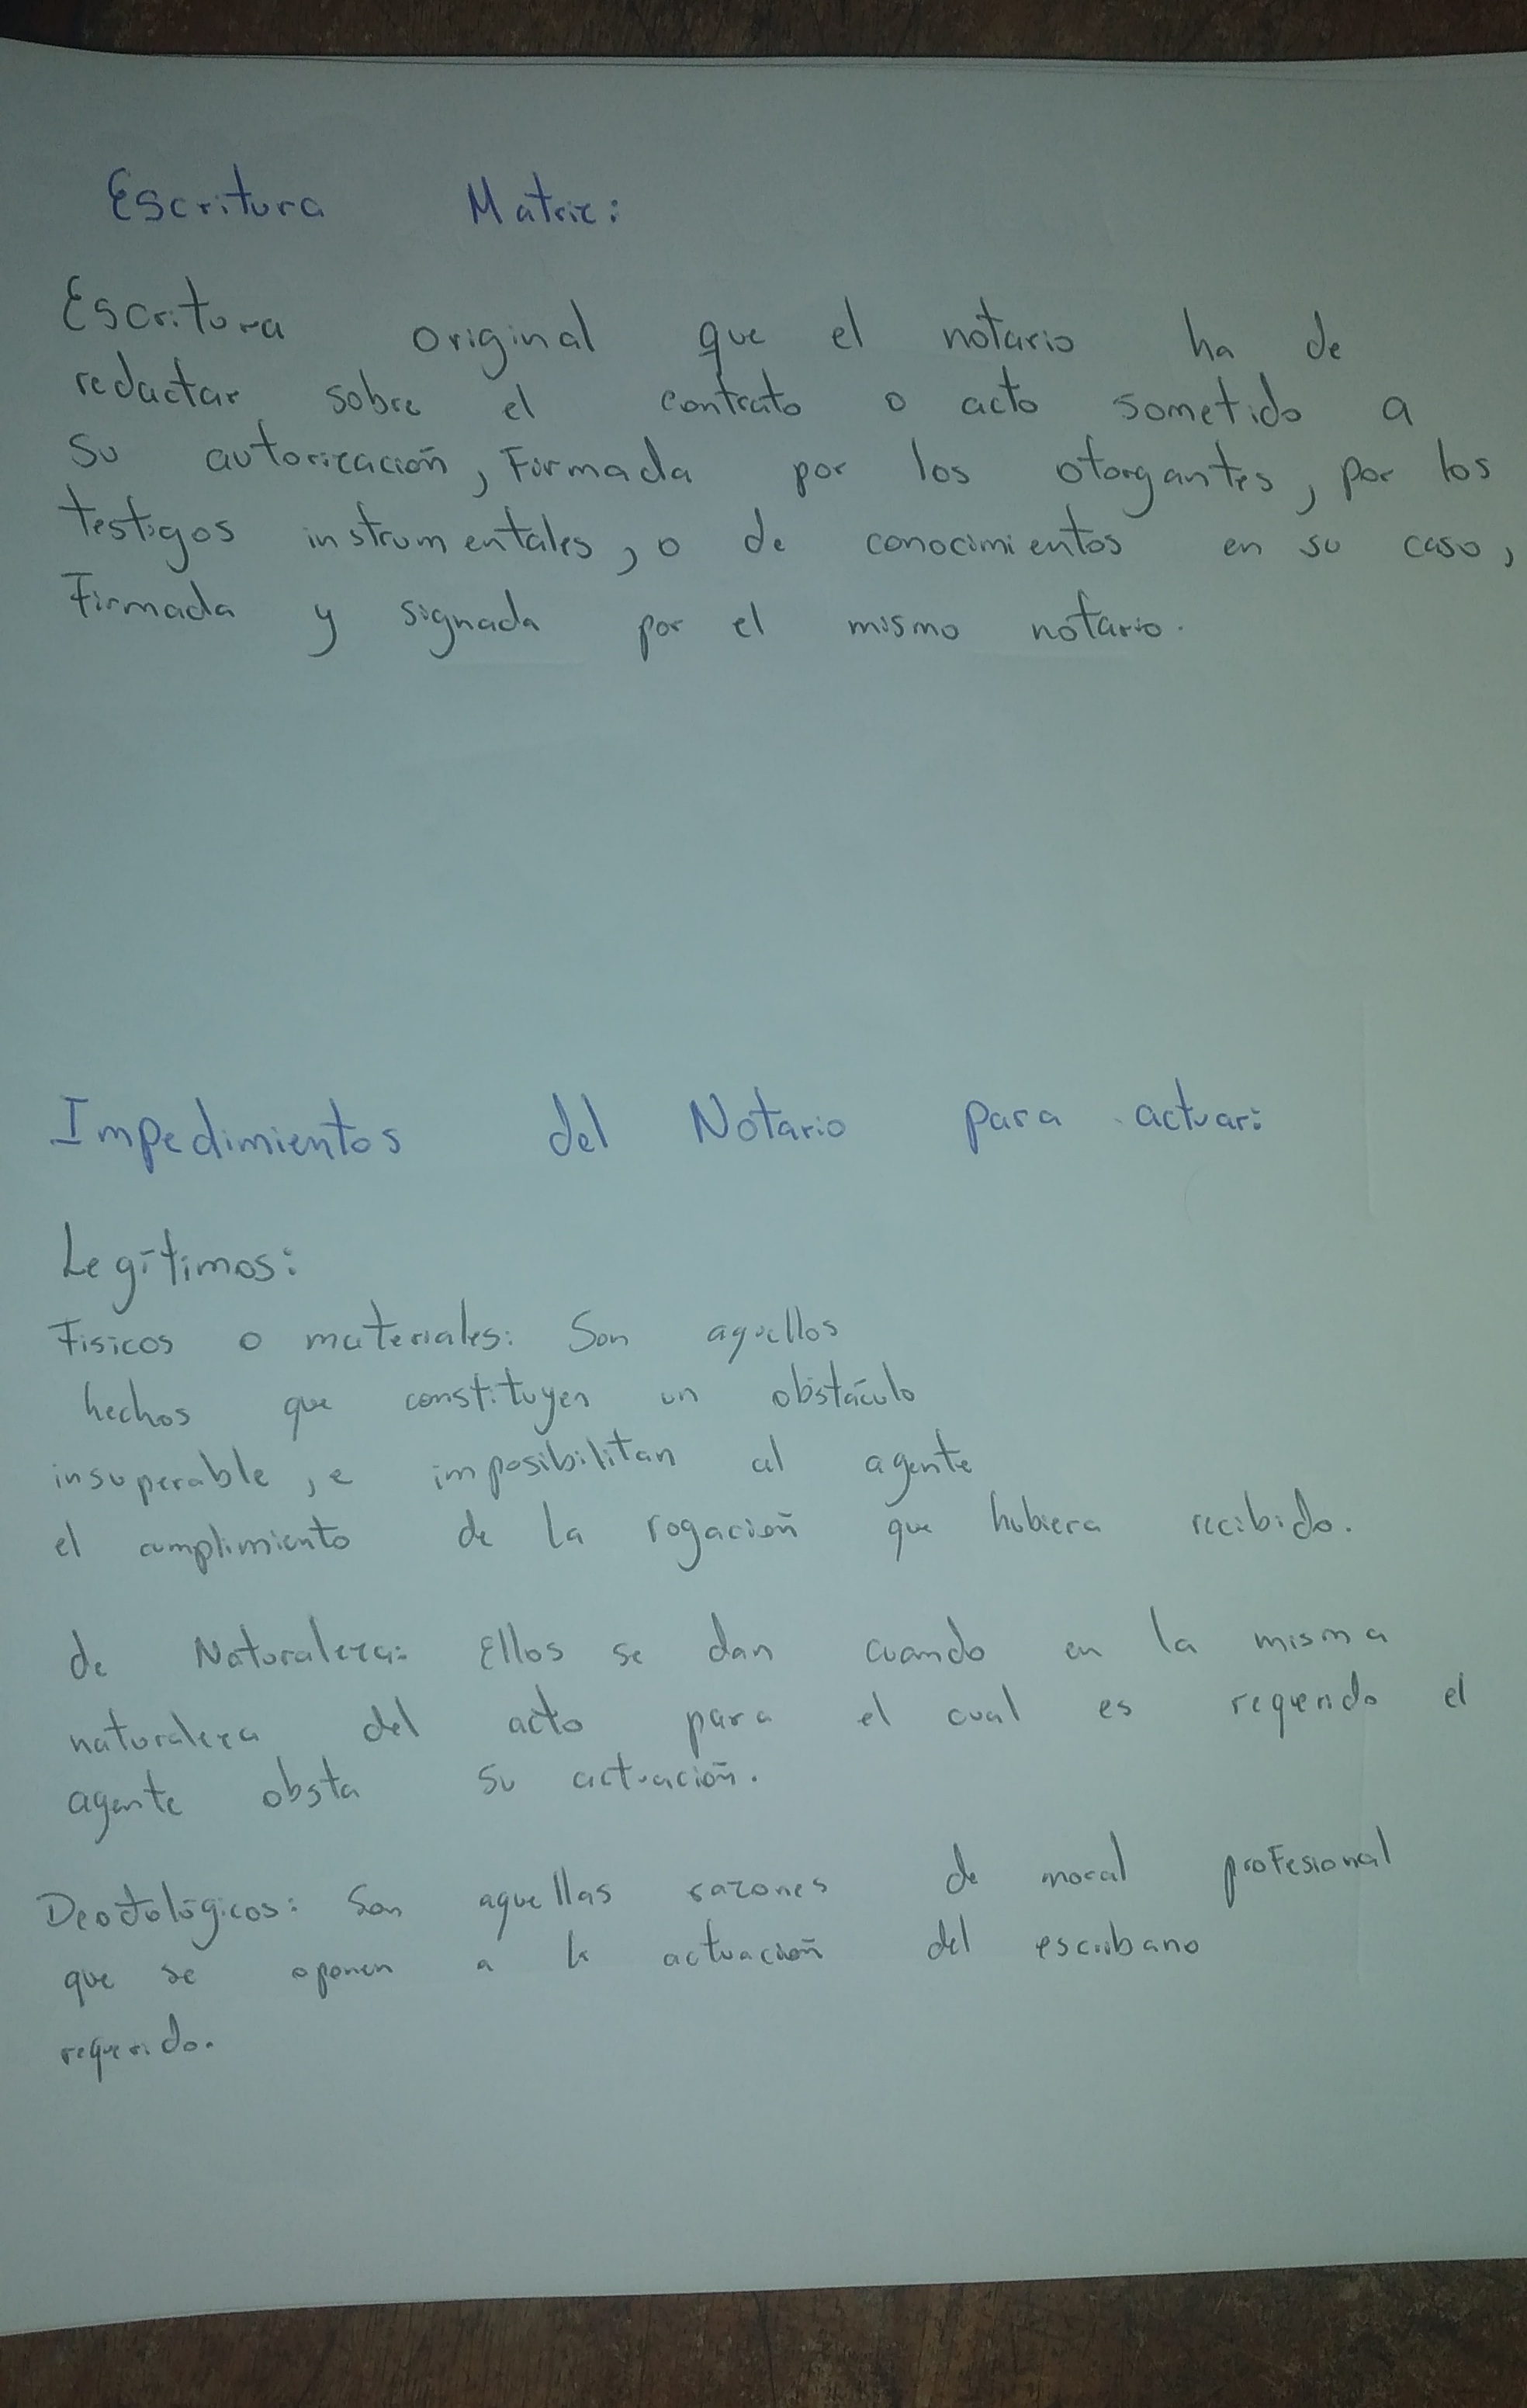 Escritura Matriz:
Escritura original que el notario ha de
redactar sobre el contrato o acto sometido a
su autorización, Formada por los otorgantes, por los
testigos instrumentales, o de conocimientos en su caso,
Firmada y signada por el mismo notario.
Impedimientos del Notario para actuar:
Legítimos:
Fisicos o materiales: Son aquellos
hechos que constituyen un obstáculo
insuperable, e imposibilitan al agente
el cumplimiento de la rogación que hubiera recibido.
de Naturaleza: Ellos se dan cuando en la misma
naturaleza del acto para el cual es requerido el
agente obsta su actuación.
Deotológicos: Son aquellas razones de moral profesional
que se oponen a la actuación del escribano
requerido.